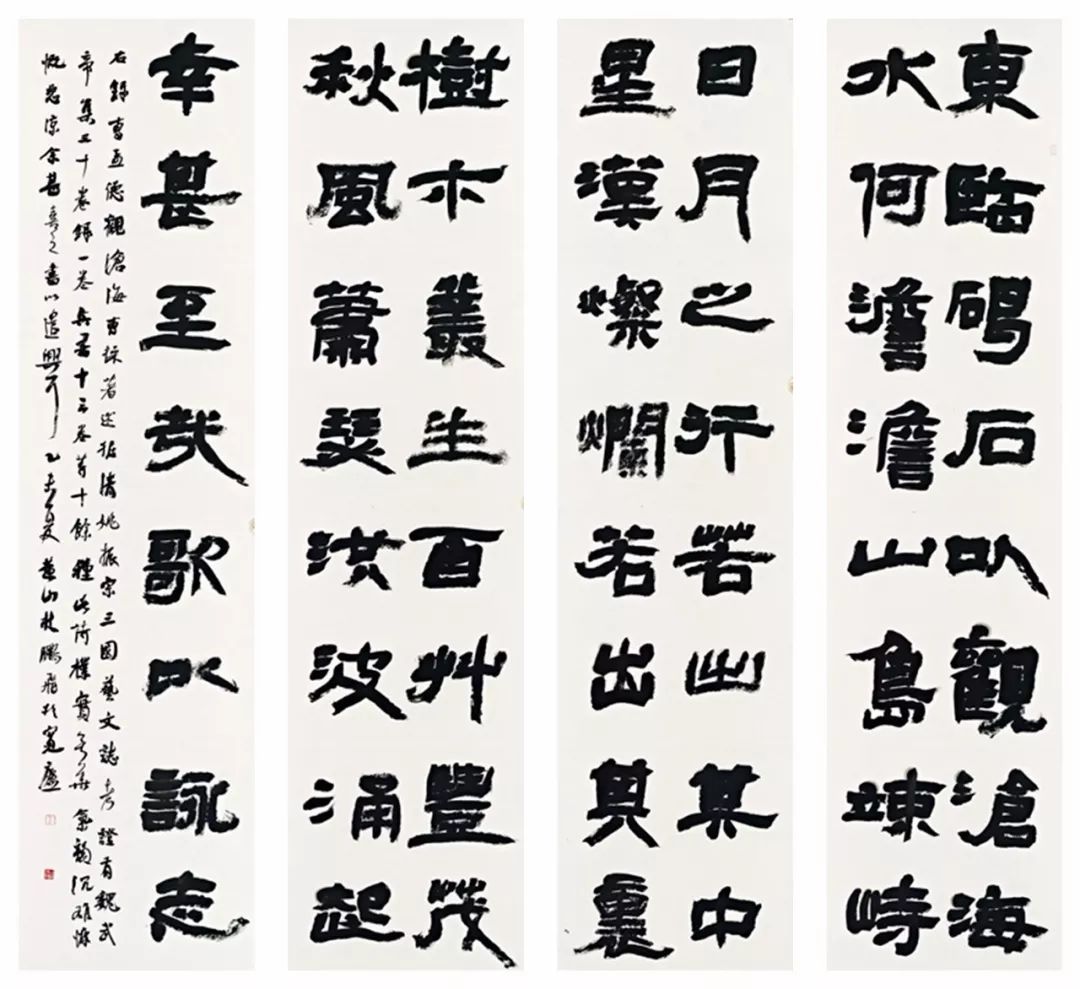 東臨碣石以觀滄海
水何澹澹山島竦峙
日月之行若出其中
星漢燦爛若出其裏
樹木叢生百艸豐茂
秋風蕭瑟洪波涌起
幸甚至哉歌以詠志
右錄曹孟德觀滄海曹操著述據清姚振宗三國藝文誌考證有魏武
帝集三十卷錄一卷兵書十三卷等十餘種此詩樸實無華氣韻沉雄慷
慨悲涼余甚喜之書以遣興耳乙未夏黃山杜鵬飛於寬廬